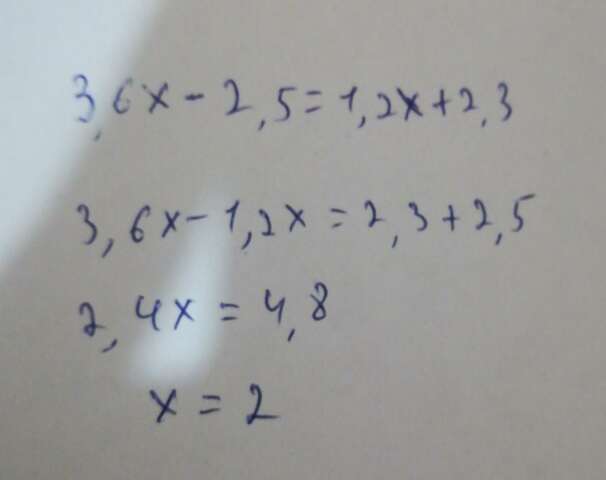 3,6x-2,5=1,2x+2,3
3,6x-1,2x=2,3+2,5
2,4x=4,8
x=2